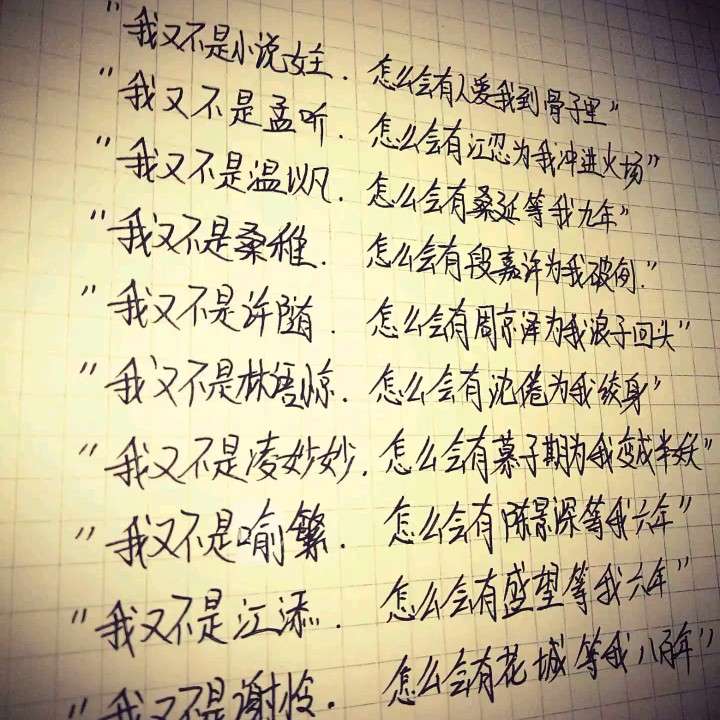 "我又不是小说女主．怎么会有人爱我到骨子里"
"我又不是孟听．怎么会有江忍为我冲进火场"
"我又不是温以凡．怎么会有桑延等我九年"
"我又不是桑稚．怎么会有段嘉许为我破例."
"我又不是许随．怎么会有周京泽为我浪子回头"
"我又不是林语惊．怎么会有沈倦为我纹身"
"我又不是凌妙妙．怎么会有慕子期为我变成半妖"
"我又不是喻繁．怎么会有陈景深等我六年"
"我又不是江添．怎么会有盛望等我六年"
"我又不是谢怜．怎么会有花城等我八百年"